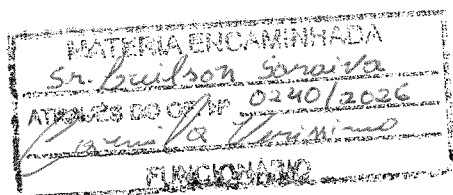 MATÉRIA ENCAMINHADA
Sr. Gueilson Saraiva
ATRAVÉS DO OF. Nº 0240/2026
Camila Verissimo
FUNCIONÁRIO